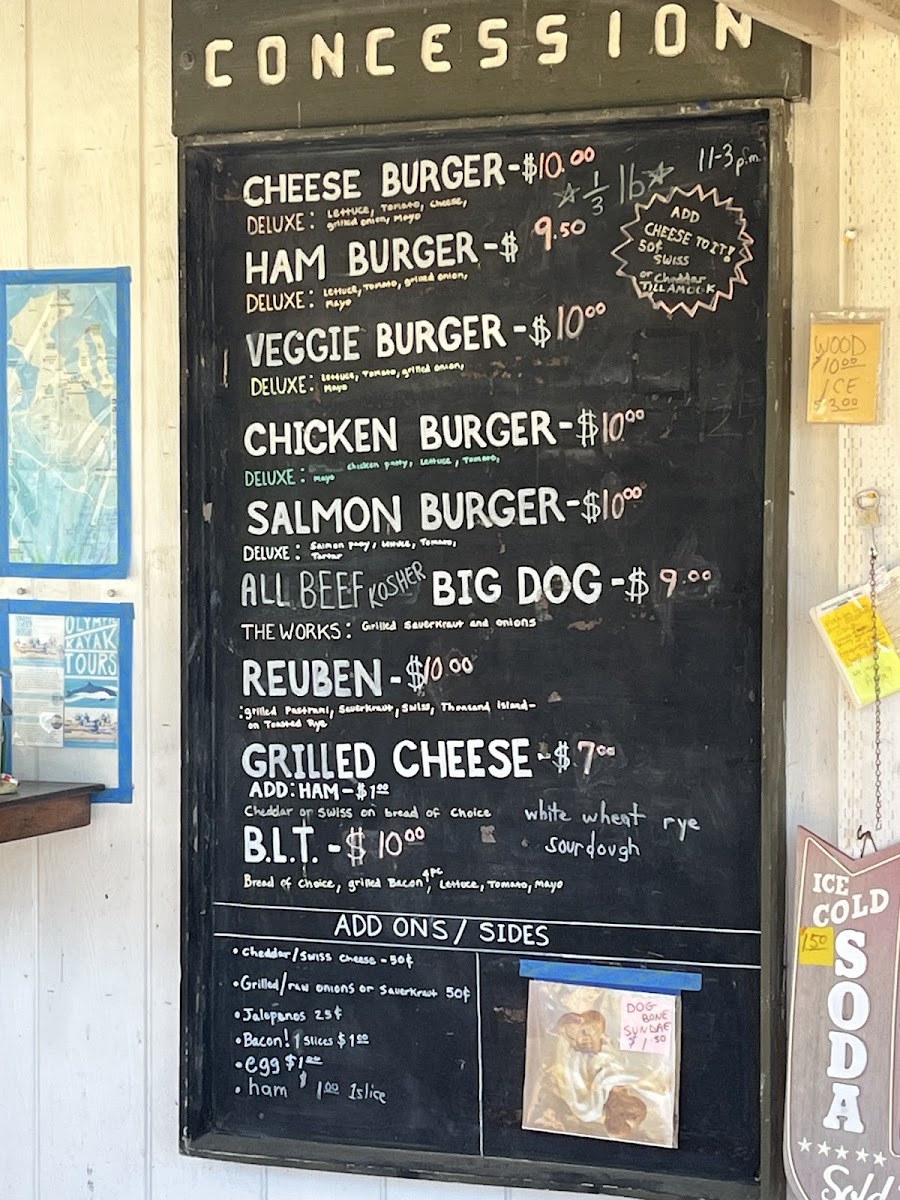 CONCESSION
11-3 p.m.
CHEESE BURGER-$10.00
☆ 1/3 lb ☆
DELUXE: Lettuce, Tomato, Cheese,
grilled onion, Mayo
ADD
CHEESE TO IT!
50¢
SWISS
or Cheddar
TILLAMOOK
HAM BURGER-$ 9.50
DELUXE: Lettuce, Tomato, grilled onion,
Mayo
VEGGIE BURGER-$10.00
DELUXE: Lettuce, Tomato, grilled onion,
Mayo
CHICKEN BURGER-$10.00
DELUXE: chicken patty, Lettuce, Tomato,
Mayo
SALMON BURGER-$10.00
DELUXE: Salmon patty, Lettuce, Tomato,
Tartar
ALL BEEF KOSHER BIG DOG-$ 9.00
THE WORKS: Grilled Sauerkraut and onions
REUBEN-$10.00
:grilled Pastrami, Sauerkraut, Swiss, Thousand island-
on Toasted Rye
GRILLED CHEESE-$7.00
ADD: HAM-$1.00
Cheddar or Swiss on bread of choice
white wheat rye
sourdough
B.L.T.-$10.00
4pc
Bread of choice, grilled Bacon, Lettuce, Tomato, Mayo
ADD ONS/ SIDES
• Cheddar/Swiss Cheese - 50¢
• Grilled/raw onions or Sauerkraut 50¢
• Jalopanos 25¢
• Bacon! 1 Slices $1.00
• egg $1.00
• ham $1.00 1slice
DOG
BONE
SUNDAE
$1.50
WOOD
$10.00
ICE
$3.00
OLYMPIC
KAYAK
TOURS
ICE
COLD
1.50
SODA
Sold